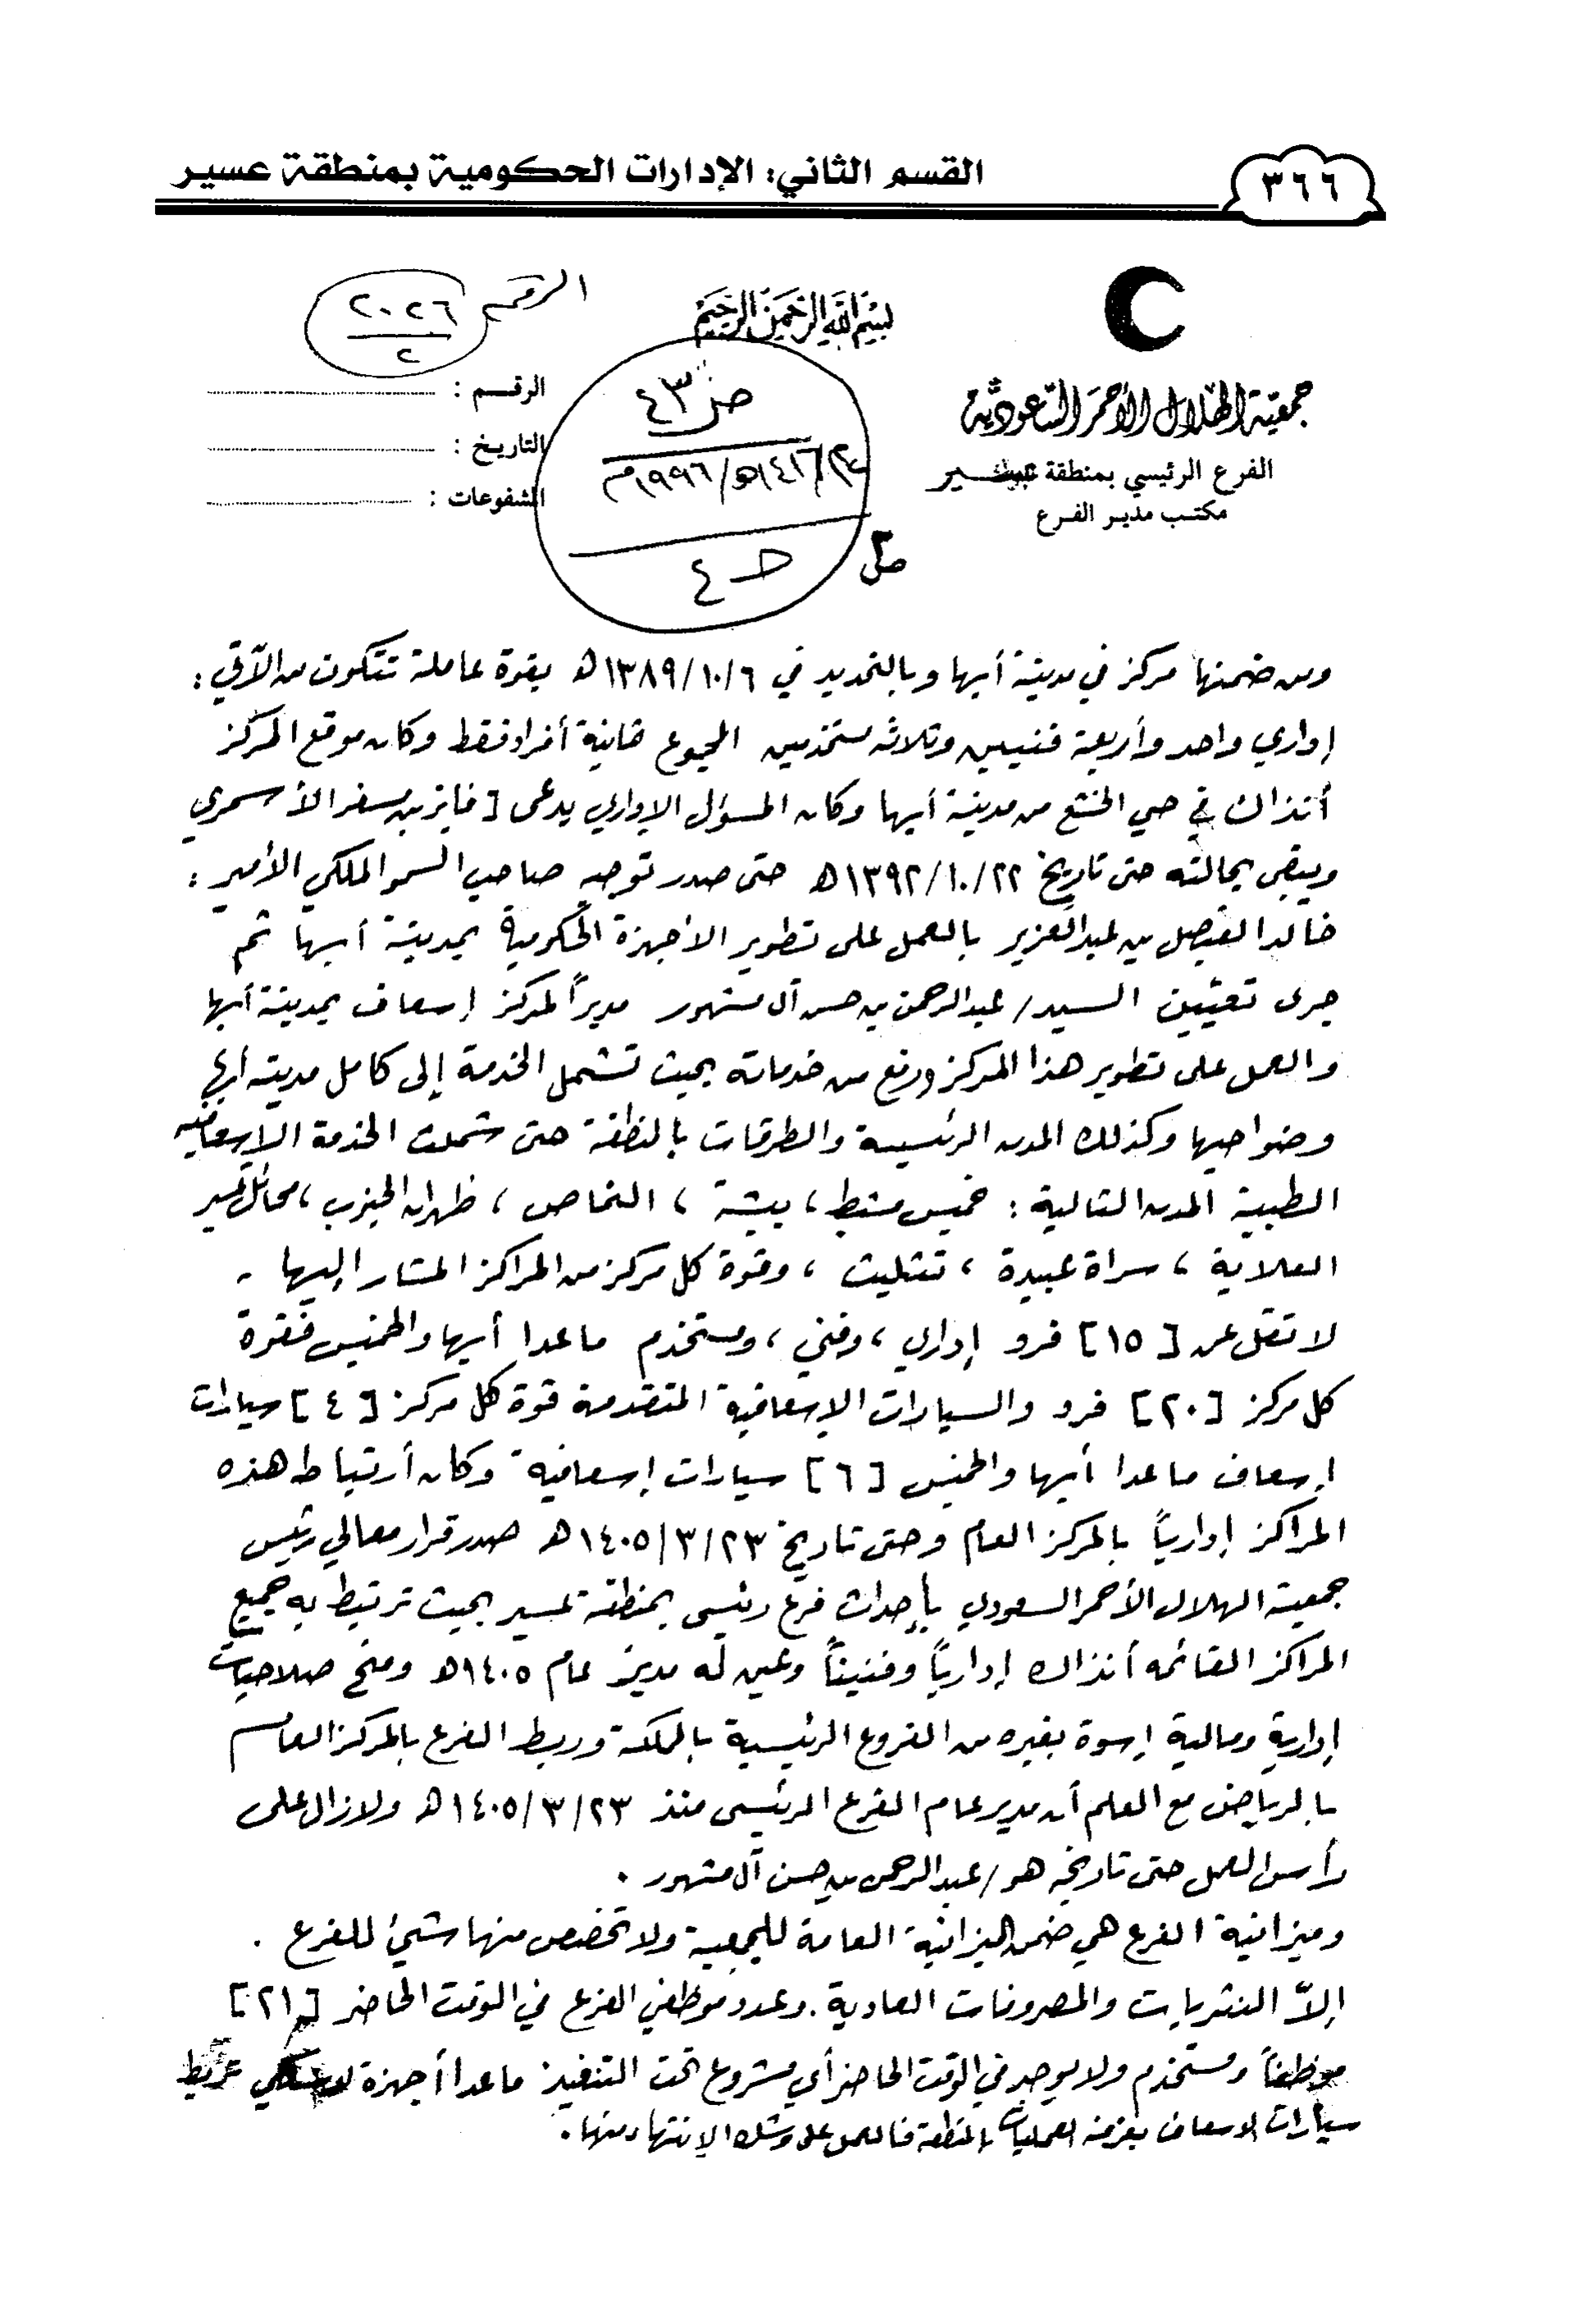 القسم الثاني: الإدارات الحكومية بمنطقة عسير
٣٦٦
بسم الله الرحمن الرحيم
جمعية الهلال الأحمر السعودية
الفرع الرئيسي بمنطقة عسير
مكتب مدير الفرع
الرقم ٢٠٢٦
٢
الرقم :
التاريخ :
المشفوعات :
ص ٤٣
١٤١٦هـ/١٩٩٦م
٤
ومن ضمنها مركز في مدينة أبها وبالتحديد في ١٣٨٩/١٠/٦هـ بقوة عاملة تتكون من الآتي :
إداري واحد وأربعة فنيين وثلاثه مستخدمين المجموع ثمانية أفراد فقط وكان موقع المركز
أنذاك في حي الخشع من مدينة أبها وكان المسؤل الإداري يدعى [ فايز بن مسفر الأسمري
ويبقى بحالته حتى تاريخ ١٣٩٢/١٠/٢٢هـ حتى صدر توجيه صاحب السمو الملكي الأمير :
خالد الفيصل بن عبدالعزيز بالعمل على تطوير الأجهزة الحكومية بمدينة أبها ثم
جرى تعيين السيد / عبدالرحمن بن حسن آل مشهور مديراً لمركز إسعاف بمدينة أبها
والعمل على تطوير هذا المركز ورفع من خدماته بحيث تشمل الخدمة إلى كامل مدينه أبها
وضواحيها وكذلك المدن الرئيسية والطرقات بالمنطقة حتى شملت الخدمة الإسعافيه
الطبية المدن التالية : خميس مشيط ، بيشة ، النماص ، ظهران الجنوب ، محائل عسير
العلاية ، سراة عبيدة ، تثليث ، وقوة كل مركز من المراكز المشار إليها -
لا تقل عن [ ١٥ ] فرد إداري ، وفني ، ومستخدم ماعدا أبها والخميس فقوة
كل مركز [ ٢٠ ] فرد والسيارات الإسعافية المتقدمة قوة كل مركز [ ٤ ] سيارات
إسعاف ماعدا أبها والخميس [ ٦ ] سيارات إسعافية وكان أرتباط هذه
المراكز إدارياً بالمركز العام وحتى تاريخ ١٤٠٥/٣/٢٣هـ صدر قرار معالي رئيس
جمعية الهلال الأحمر السعودي بإحداث فرع رئيسي بمنطقة عسير بحيث ترتبط به جميع
المراكز القائمه أنذاك إدارياً وفنيناً وعين له مدير عام ١٤٠٥هـ ومنح صلاحيات
إدارية ومالية إسوة بغيره من الفروع الرئيسية بالمملكة وربط الفرع بالمركز العام
بالرياض مع العلم أن مدير عام الفرع الرئيسي منذ ١٤٠٥/٣/٢٣هـ ولازال على
رأس العمل حتى تاريخه هو / عبدالرحمن بن حسن آل مشهور .
وميزانية الفرع هي ضمن الميزانية العامة للجمعية ولا تخصص منها شيئ للفرع .
إلاّ النثريات والمصروفات العادية . وعدد موظفي الفرع في الوقت الحاضر [ ٢١ ]
موظفاً ومستخدم ولا يوجد في الوقت الحاضر أي مشروع تحت التنفيذ ماعدا أجهزة تربط
سيارات الاسعاف بغرفة العمليات بالمنطقة فالعمل على وشك الإنتهاء منها .